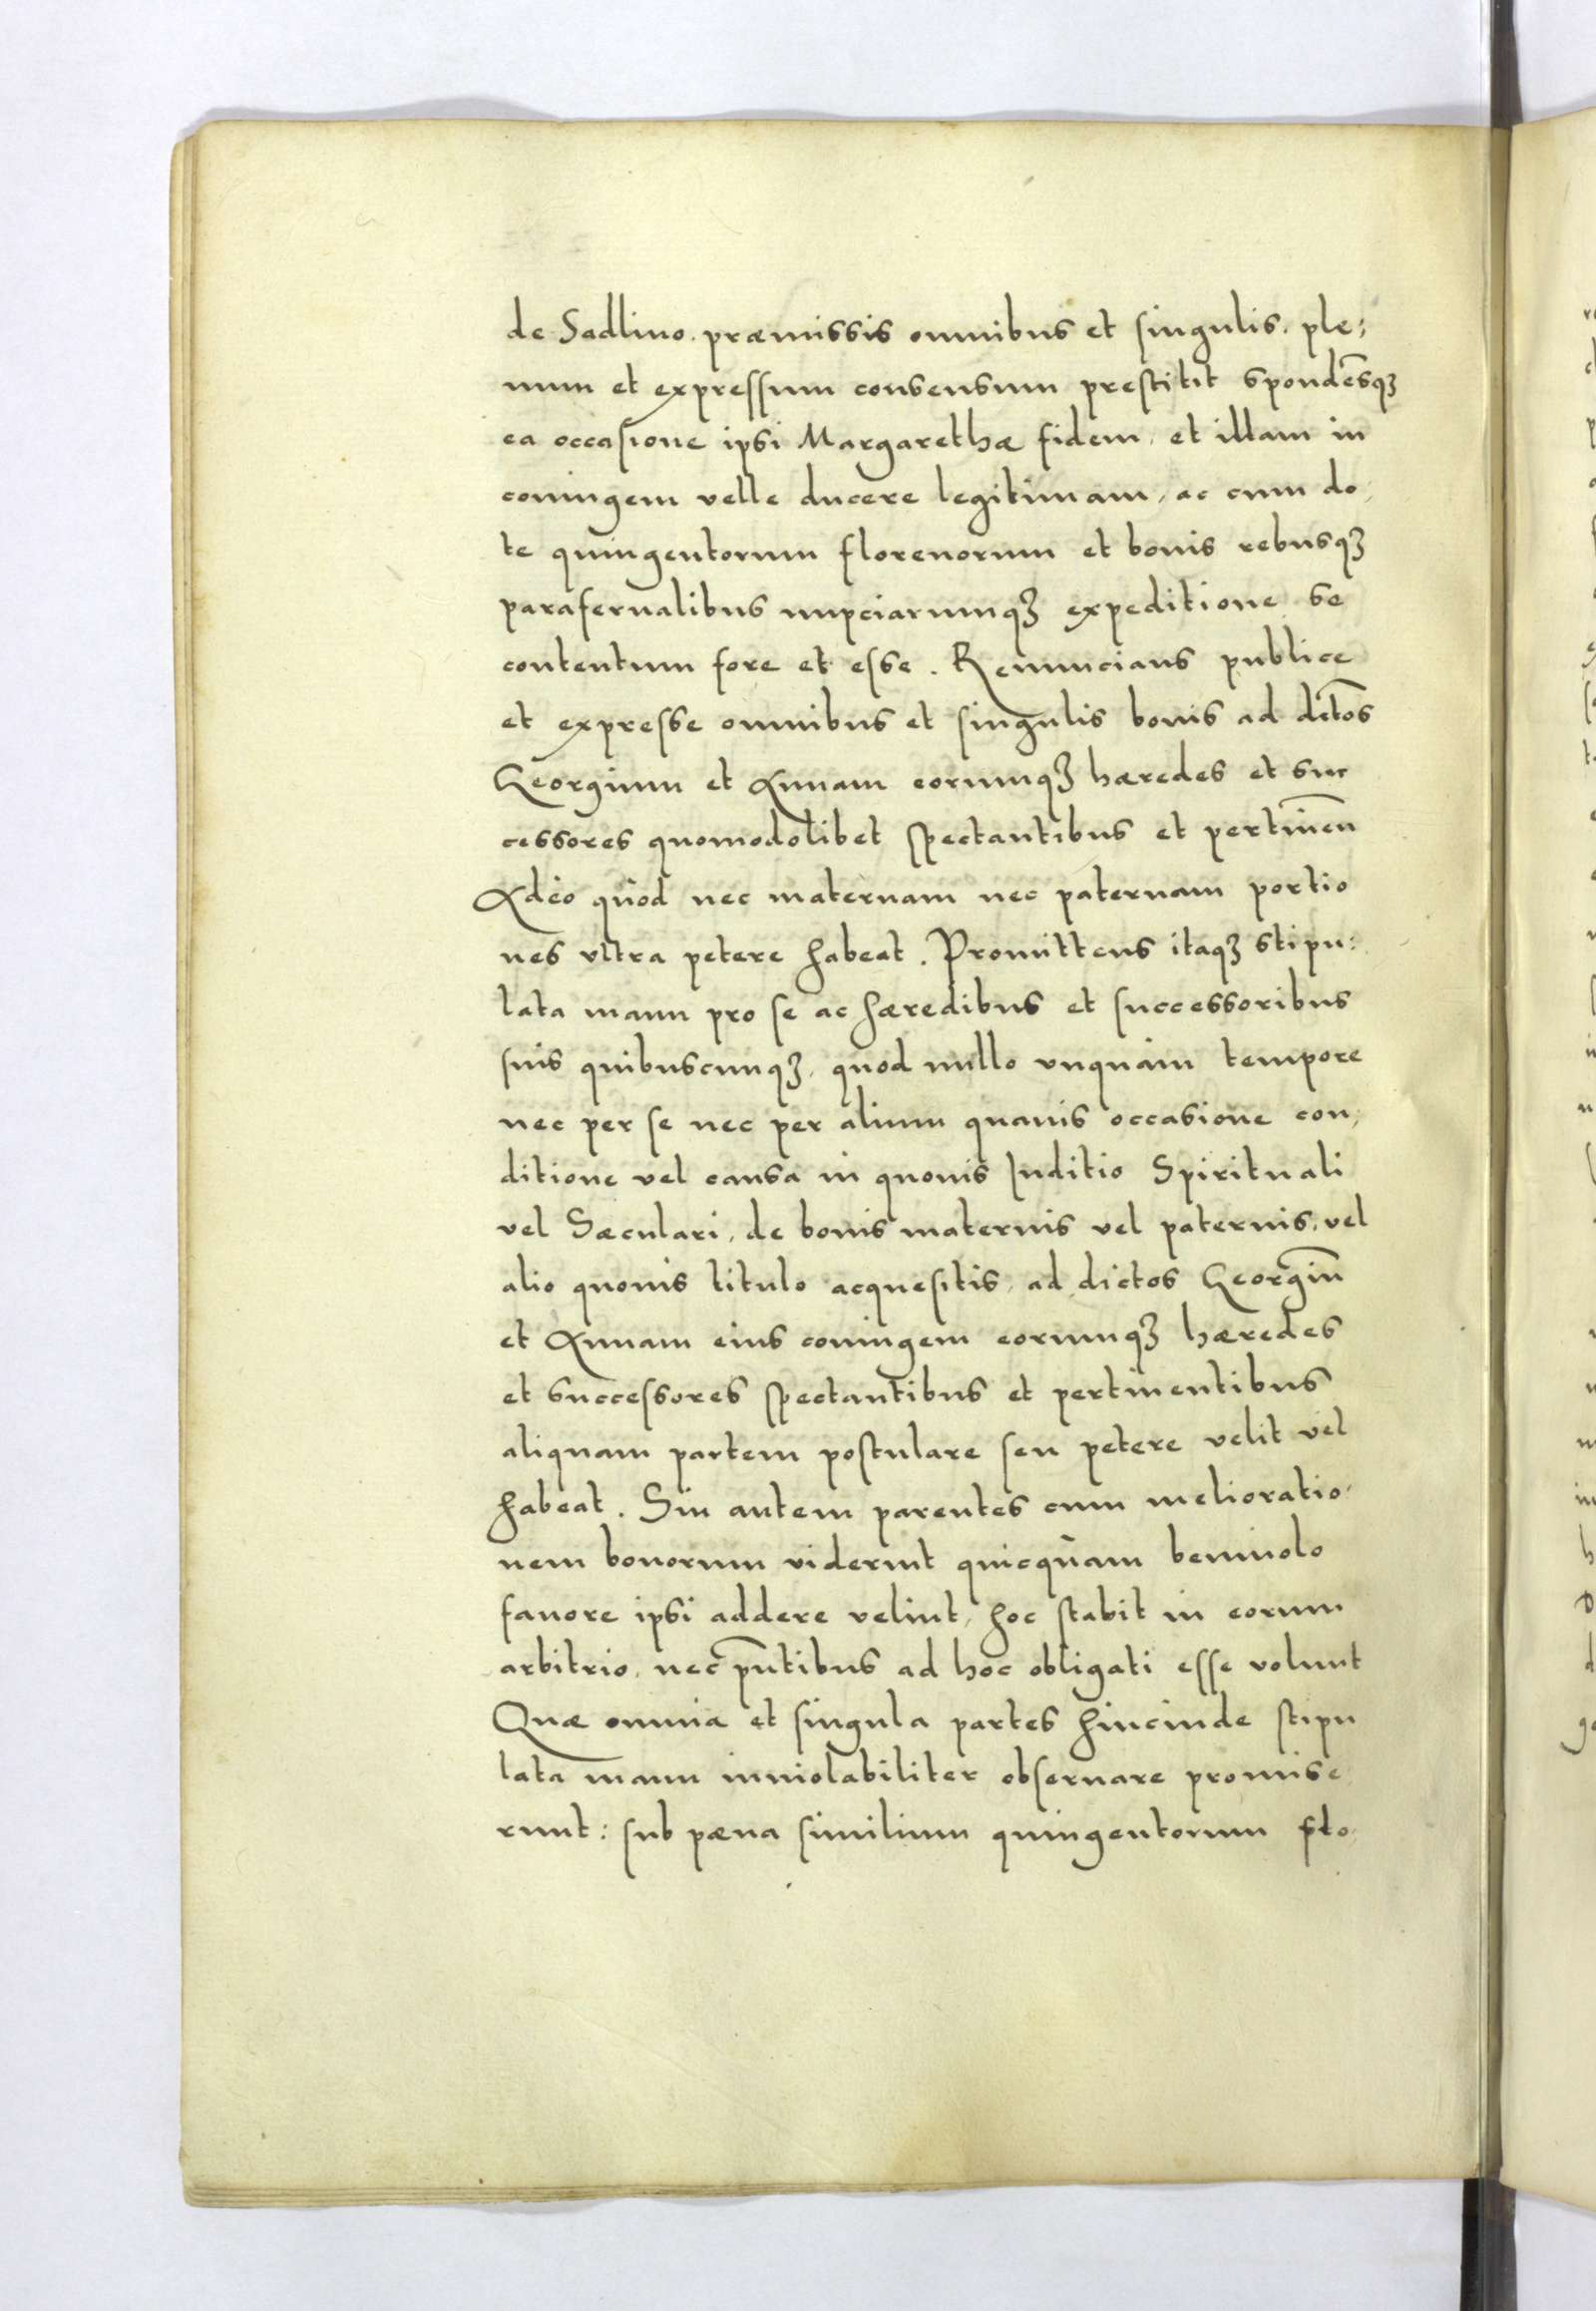 de Sadlino. præmissis omnibus et singulis. ple:
num et expressum consensum prestitit spondēsqꝫ
ea occasione ipsi Margarethæ fidem, et illam in
coniugem velle ducere legitimam, ac cum do,
te quingentorum florenorum et bonis rebusqꝫ
parafernalibus nupciarumqꝫ expeditione se
contentum fore et esse. Renuncians publice
et expresse omnibus et singulis bonis ad dc̄tos
Georgium et Annam eorumqꝫ hæredes et suc
cessores quomodolibet spectantibus et pertineñ
Adeo quod nec maternam nec paternam portio
nes vltra petere habeat. Promittens itaqꝫ stipu:
lata manu pro se ac hæredibus et successoribus
suis quibuscunqꝫ, quod nullo vnquam tempore
nec per se nec per alium quauis occasione con,
ditione vel causa in quouis Iuditio Spirituali
vel Sæculari, de bonis maternis vel paternis, vel
alio quouis titulo acquesitis, ad dictos Georgiū
et Annam eius coniugem eorumqꝫ hæredes
et successores spectantibus et pertinentibus
aliquam partem postulare seu petere velit vel
habeat. Sin autem parentes cum melioratio,
nem bonorum viderint quicquam beniuolo
fauore ipsi addere velint, hoc stabit in eorum
arbitrio, nec pñtibus ad hoc obligati esse volunt
Quæ omnia et singula partes hincinde stipu
lata manu inuiolabiliter obseruare promise
runt: sub pæna similium quingentorum flo,